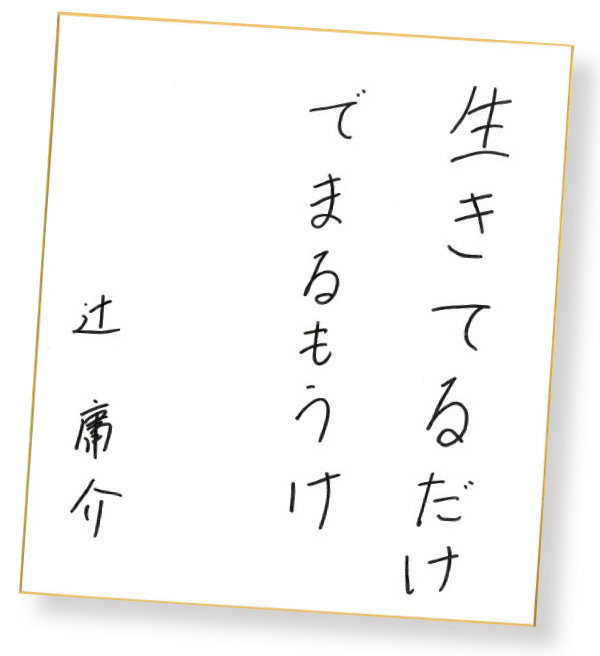 生きてるだけ
でまるもうけ
辻庸介